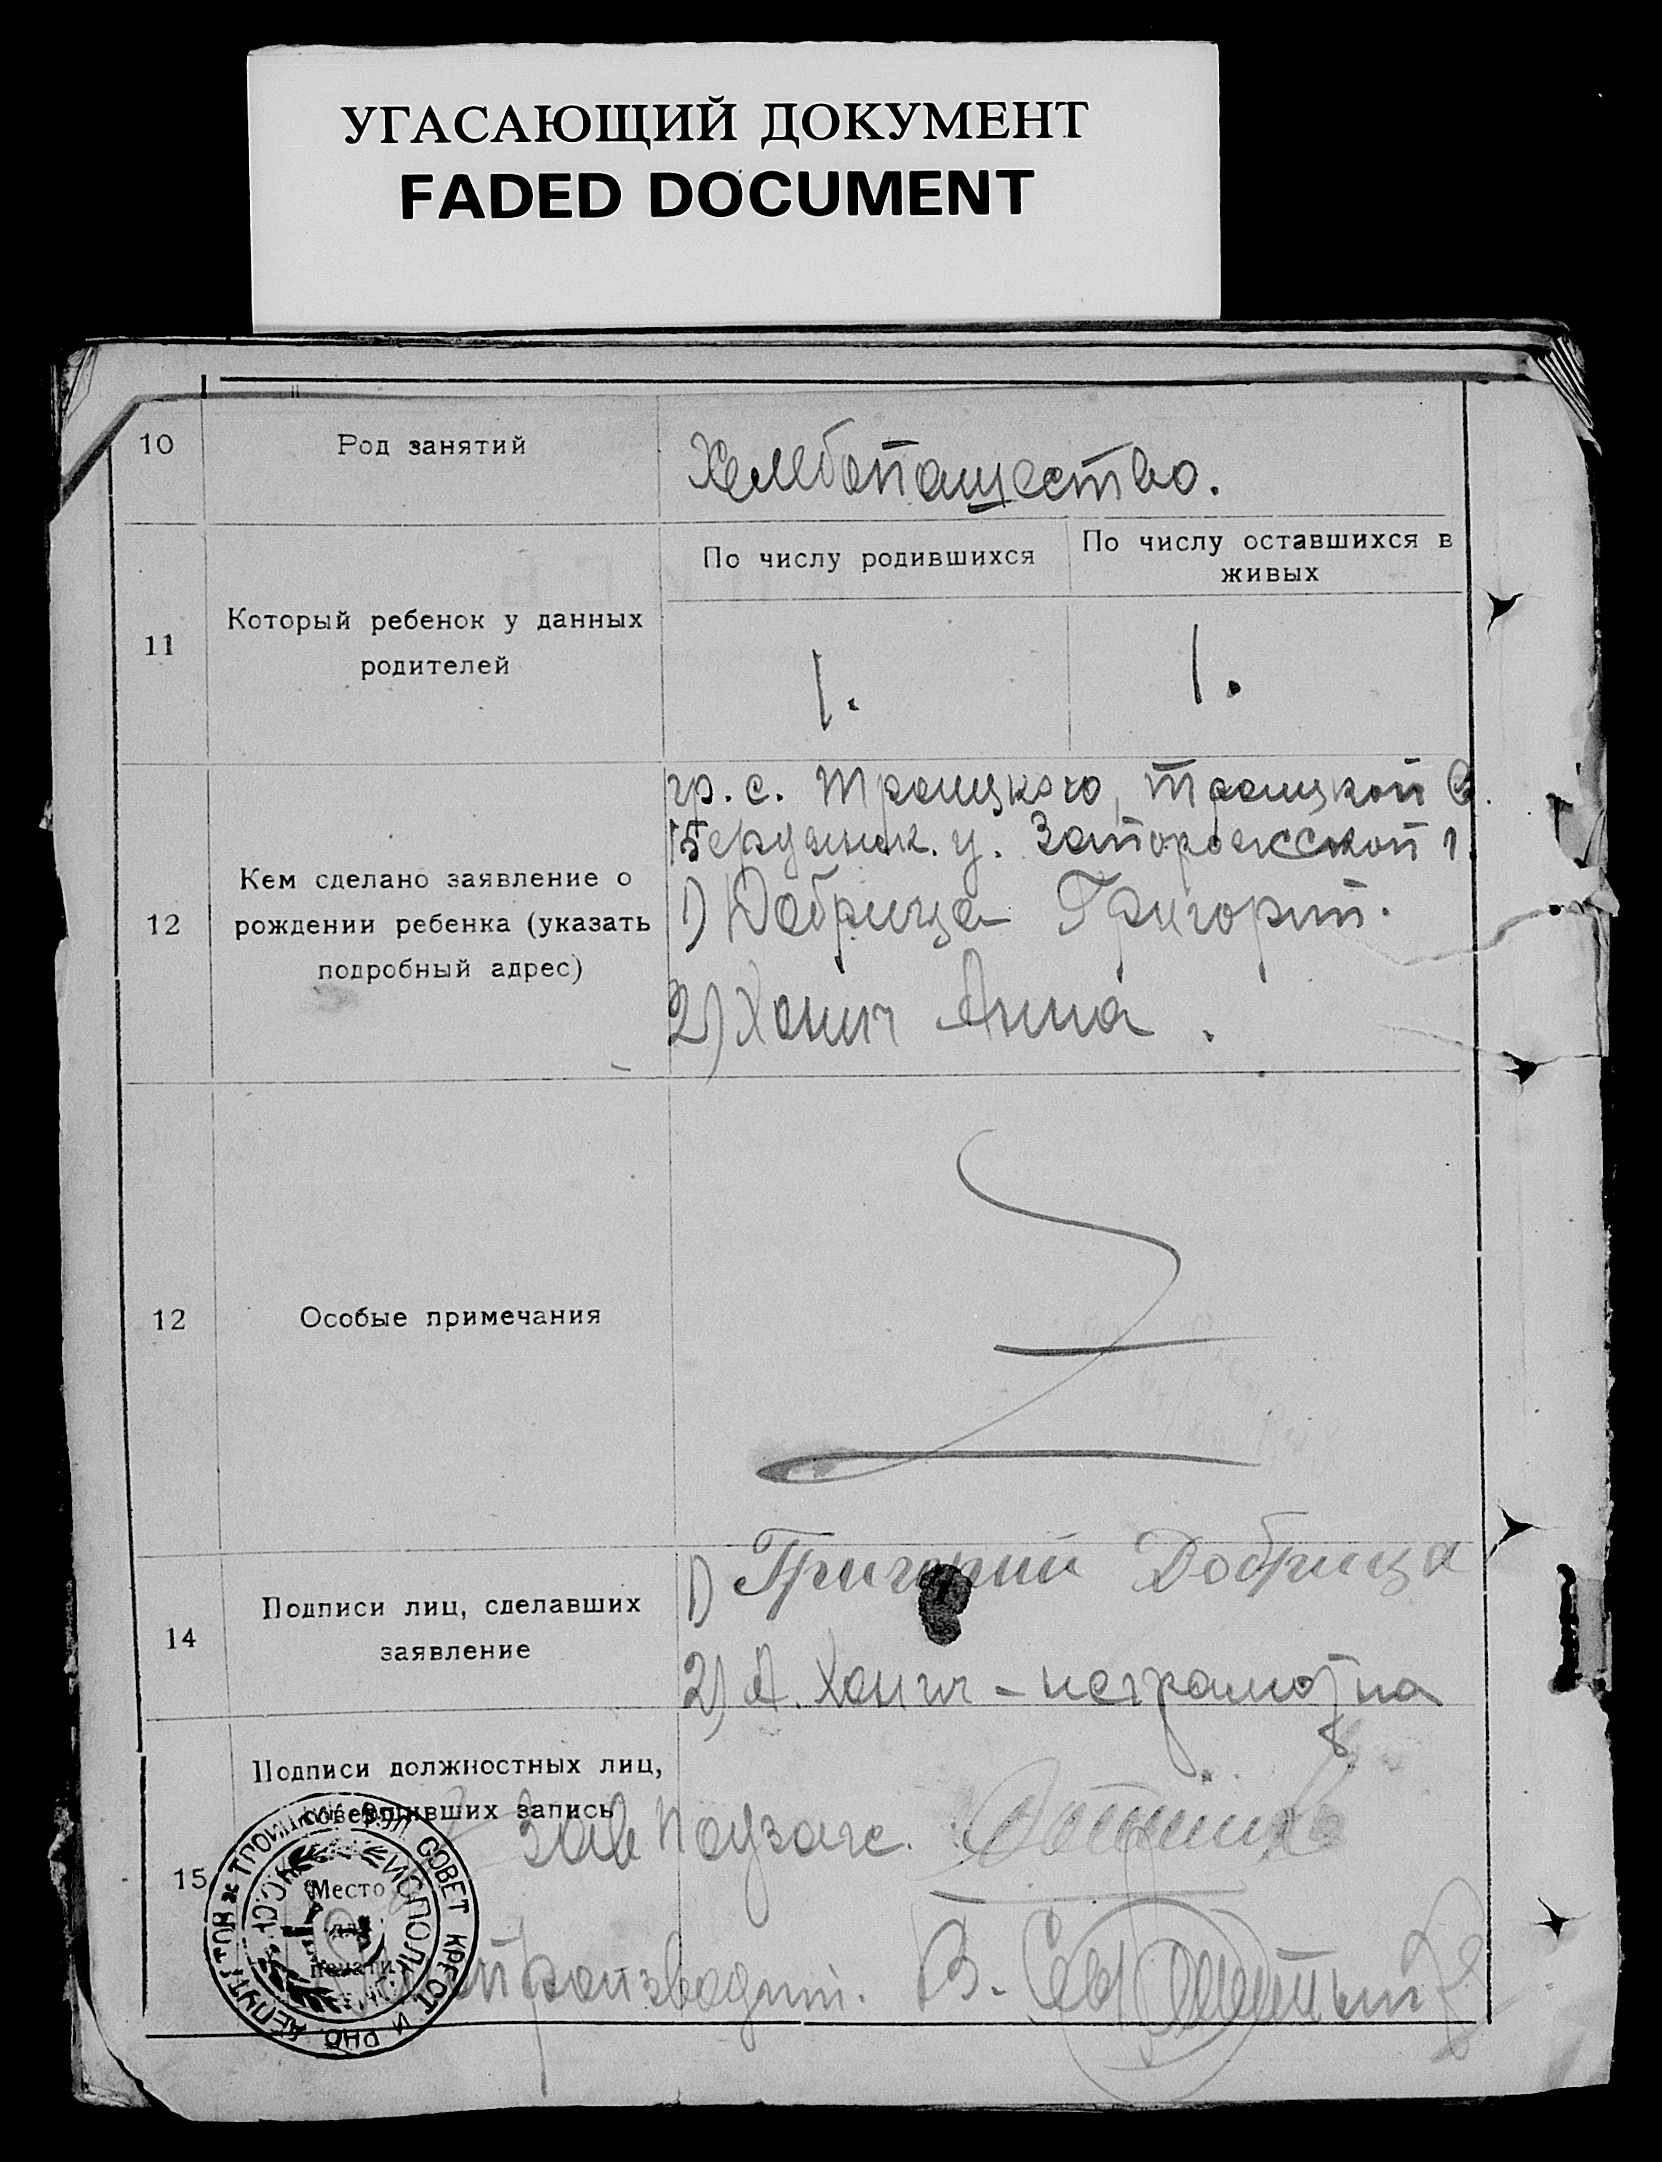 УГАСАЮЩИЙ ДОКУМЕНТ
FADED DOCUMENT
10
Род занятий
Хлебопашество.
11
Который ребенок у данных
родителей
По числу родившихся
По числу оставшихся в
живых
1.
1.
12
Кем сделано заявление о
рождении ребенка (указать
подробный адрес)
гр. с. Троицкого, Троицкой в.
Бердянск. у. Запорожской г.
1) Добрица Григорий.
2) Ханич Анна.
12
Особые примечания
14
Подписи лиц, сделавших
заявление
1) Григорий Добрица
2) А. Ханич - неграмотна
15
Подписи должностных лиц,
совершивших запись
Зав Подзагс.
Место
для
печати
Делопроизводит. В.
ТРОИЦКИЙ ВОЛ. СОВЕТ КРЕСТ И ДЕПУТАТОВ
ИСПОЛКОМ